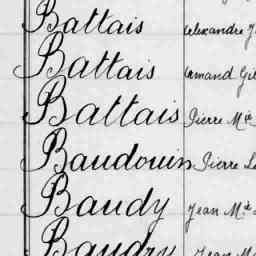 Battais Alexandre J
Battais Armand Gil
Battais Pierre Mie
Baudouin Pierre Lo
Baudy Jean Mie
Baudry Jean M